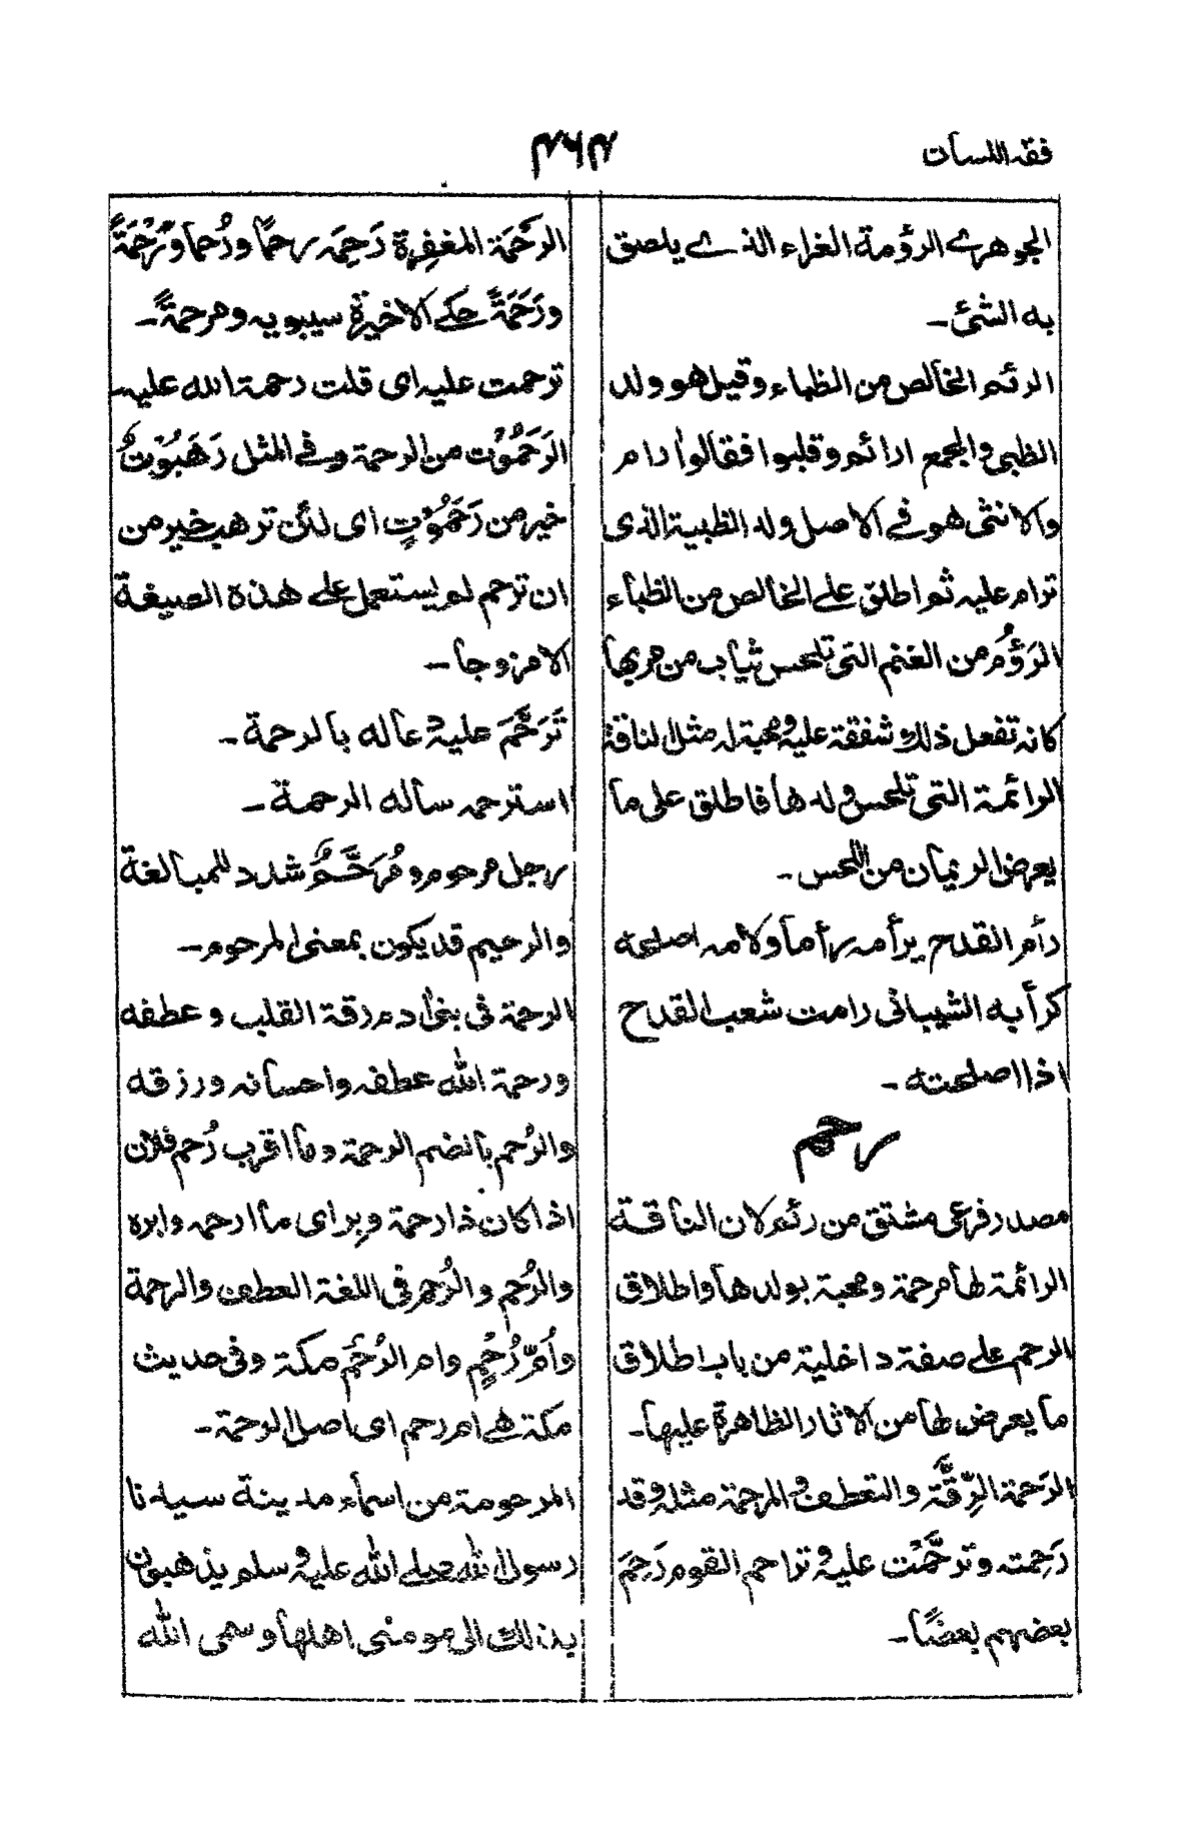 فقه اللسان
الجوهري الرؤمة الغراء الذي يلصق
به الشئ ـ
الرئم الخالص من الظباء وقيل هو ولد
الظبي والجمع ارائم وقلبوا فقالوا ارام
والانثى هو في الاصل ولد الظبية الذى
ترام عليه ثم اطلق على الخالص من الظباء
الرَؤُم من الغنم التى تلحس ثياب من مر بها
كانه تفعل ذلك شفقة عليه ومحبة له مثل الناقة
الرائمة التى تلحس ولدها فاطلق على ما
يعرض الريمان من اللحس ـ
رأم القدح يرأمه رأما ولأمه اصلحه
كرأبه الشيبانى رامت شعب القدح
اذا اصلحته ـ
رحم
مصدر فرعى مشتق من رئم لان الناقة
الرائمة لها مرحمة ومحبة بولدها واطلاق
الرحم على صفة داخلية من باب اطلاق
ما يعرض لها من الاثار الظاهرة عليها ـ
الرَحمة الرِّقَّة والتعطف والمرحمة مثله وقد
رَحِمته وترحَّمْت عليه وتراحم القوم رَحِمَ
بعضهم بعضًا ـ
الرَحْمَة المغفِرة رَحِمَه رحمًا ورُحما ورُحْمَةً
ورَحَمَةً حكى الاخيرة سيبويه ومرحمةً ـ
ترحمت عليه اى قلت رحمة الله عليه
الرَحَمُوْت من الرحمة وفي المثل رَهَبُوْتٌ
خير من رَحَمُوْتٍ اى لئن ترهب خير من
ان ترحم لم يستعمل على هذه الصيغة
الا مزوجا ـ
تَرَحَّمَ عليه دعا له بالرحمة ـ
استرحمه سأله الرحمة ـ
رجل مرحوم ومُرَحَّمٌ شدد للمبالغة
والرحيم قد يكون بمعنى المرحوم ـ
الرحمة فى بنى أدم رقة القلب وعطفه
ورحمة الله عطفه واحسانه ورزقه
والرُحم بالضم الرحمة وما اقرب رُحم فلان
اذا كان ذا رحمة وبِر اى ما ارحمه وابره
والرُحْم والرُحُم فى اللغة العطف والرحمة
وأمّ رُحْمٍ وام الرُحْم مكة وفى حديث
مكة هى ام رحم اى اصل الرحمة ـ
المرحومة من اسماء مدينة سيدنا
رسول الله صلى الله عليه وسلم يذهبون
بذالك الى مومنى اهلها وسمى الله